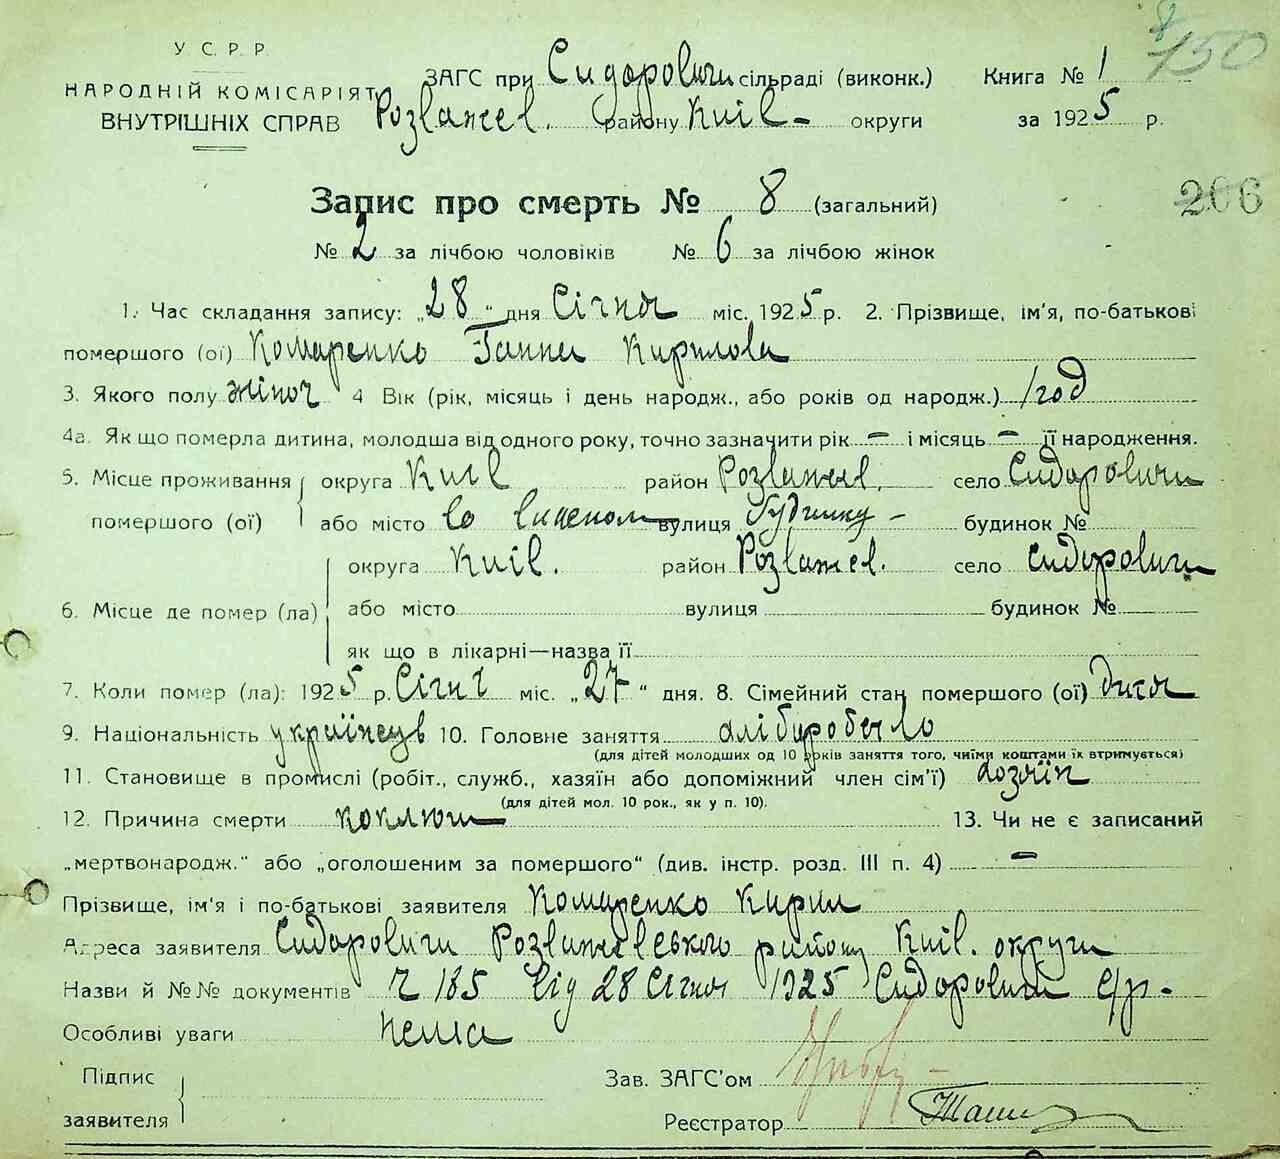 У С. Р. Р.
НАРОДНІЙ КОМІСАРІЯТ
ВНУТРІШНІХ СПРАВ
ЗАГС при Сидоровичи сільраді (виконк.)
Розважев. району Київ- округи
Книга № 1
за 1925 р.
150
206
Запис про смерть № 8 (загальний)
№ 2 за лічбою чоловіків № 6 за лічбою жінок
1. Час складання запису: „28" дня Січня міс. 1925 р. 2. Прізвище, ім'я, по-батькові
помершого (ої) Комаренко Ганна Кирилова
3. Якого полу жіноч 4 Вік (рік, місяць і день народж., або років од народж.) 1 год
4а. Як що померла дитина, молодша від одного року, точно зазначити рік — і місяць — її народження.
5. Місце проживання округа Київ район Розважев. село Сидоровичи
помершого (ої) або місто во власном вулиця будинку - будинок №
округа Київ. район Розважев. село Сидоровичи
6. Місце де помер (ла) або місто вулиця будинок №
як що в лікарні—назва її
7. Коли помер (ла): 1925 р. Січні міс. „27" дня. 8. Сімейний стан помершого (ої) дитя
9. Національність українець 10. Головне заняття хліборобство
(для дітей молодших од 10 років заняття того, чиїми коштами їх втримується)
11. Становище в промислі (робіт., служб., хазяїн або допоміжний член сім'ї) хозяїн
(для дітей мол. 10 рок., як у п. 10).
12. Причина смерти коклюш 13. Чи не є записаний
„мертвонародж." або „оголошеним за помершого" (див. інстр. розд. III п. 4) —
Прізвище, ім'я і по-батькові заявителя Комаренко Кирил
Адреса заявителя Сидоровичи Розважевського району Київ. округи
Назви й №№ документів Ч 185 від 28 Січня 1925 Сидоровичи с/р.
Особливі уваги нема
Підпис
заявителя
Зав. ЗАГС'ом
Реєстратор